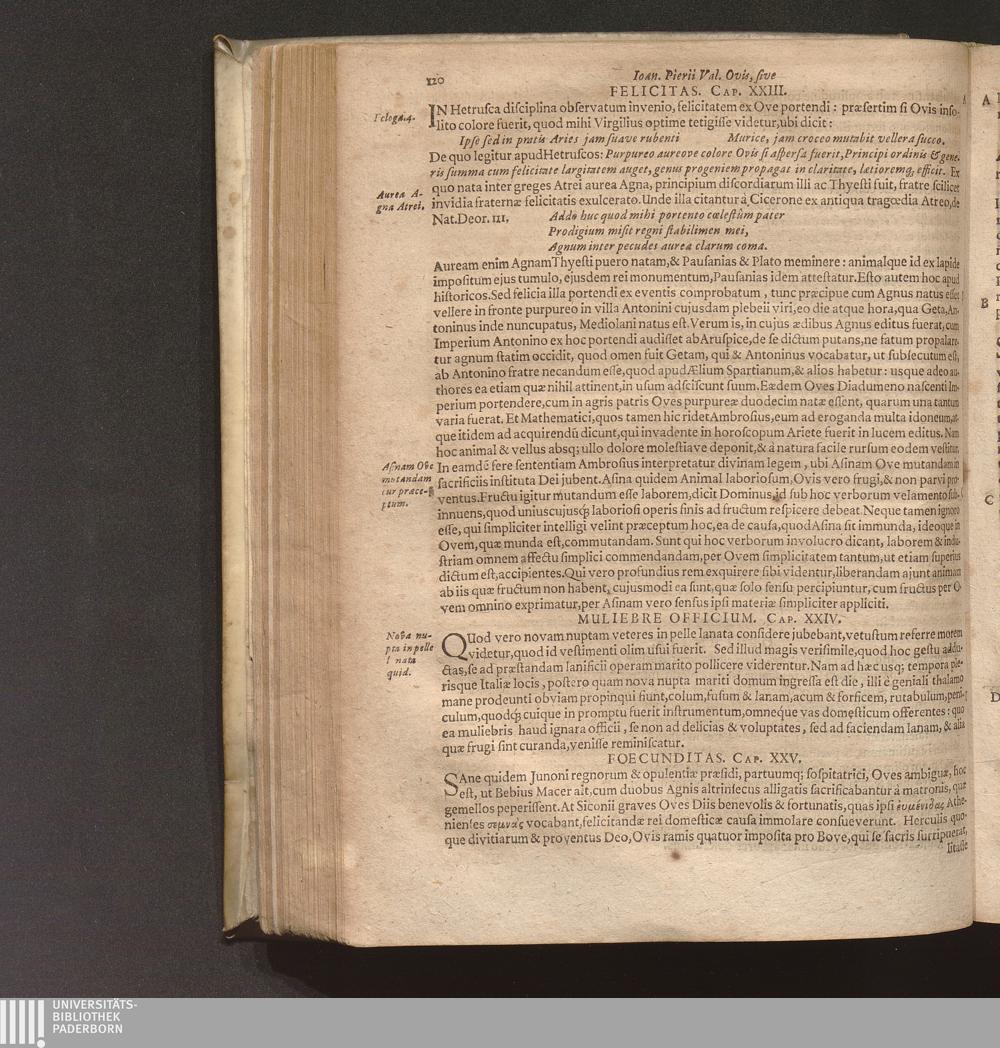 120
Ioan. Pierii Val. Ovis, sive
FELICITAS. CAP. XXIII.
Eclog. 4.
IN Hetrusca disciplina observatum invenio, felicitatem ex Ove portendi: præsertim si Ovis inso-
lito colore fuerit, quod mihi Virgilius optime tetigisse videtur, ubi dicit:
Ipse sed in pratis Aries jam suave rubenti Murice, jam croceo mutabit vellera succo.
De quo legitur apud Hetruscos: Purpureo aureove colore Ovis si aspersa fuerit, Principi ordinis & gene-
ris summa cum felicitate largitatem auget, genus progeniem propagat in claritate, lætioremq; efficit. Ex
Aurea A-
gna Atrei.
quo nata inter greges Atrei aurea Agna, principium discordiarum illi ac Thyesti fuit, fratre scilicet
invidia fraternæ felicitatis exulcerato. Unde illa citantur à Cicerone ex antiqua tragœdia Atreo, de
Nat. Deor. III,
Addo huc quod mihi portento cœlestûm pater
Prodigium misit regni stabilimen mei,
Agnum inter pecudes aurea clarum coma.
Auream enim Agnam Thyesti puero natam, & Pausanias & Plato meminere: animalque id ex lapide
impositum ejus tumulo, ejusdem rei monumentum, Pausanias idem attestatur. Esto autem hoc apud
historicos. Sed felicia illa portendi ex eventis comprobatum, tunc præcipue cum Agnus natus esset
vellere in fronte purpureo in villa Antonini cujusdam plebeii viri, eo die atque hora, qua Geta, An-
toninus inde nuncupatus, Mediolani natus est. Verum is, in cujus ædibus Agnus editus fuerat, cum
Imperium Antonino ex hoc portendi audisset ab Aruspice, de se dictum putans, ne fatum propalare-
tur agnum statim occidit, quod omen fuit Getam, qui & Antoninus vocabatur, ut subsecutum est,
ab Antonino fratre necandum esse, quod apud Ælium Spartianum, & alios habetur: usque adeo au-
thores ea etiam quæ nihil attinent, in usum adsciscunt suum. Eædem Oves Diadumeno nascenti Im-
perium portendere, cum in agris patris Oves purpureæ duodecim natæ essent, quarum una tantum
varia fuerat. Et Mathematici, quos tamen hic ridet Ambrosius, eum ad eroganda multa idoneum, at-
que itidem ad acquirendũ dicunt, qui invadente in horoscopum Ariete fuerit in lucem editus. Nam
hoc animal & vellus absq; ullo dolore molestiave deponit, & à natura facile rursum eodem vestitur.
Asinam Ove
mutandam
cur præce-
ptum.
In eamdẽ fere sententiam Ambrosius interpretatur divinam legem, ubi Asinam Ove mutandam in
sacrificiis instituta Dei jubent. Asina quidem Animal laboriosum, Ovis vero frugi, & non parvi pro-
ventus. Fructu igitur mutandum esse laborem, dicit Dominus, id sub hoc verborum velamento sub-
innuens, quod uniuscujusq; laboriosi operis finis ad fructum respicere debeat. Neque tamen ignoro
esse, qui simpliciter intelligi velint præceptum hoc, ea de causa, quod Asina sit immunda, ideoque in
Ovem, quæ munda est, commutandam. Sunt qui hoc verborum involucro dicant, laborem & indu-
striam omnem affectu simplici commendandam, per Ovem simplicitatem tantum, ut etiam superius
dictum est, accipientes. Qui vero profundius rem exquirere sibi videntur, liberandam ajunt animam
ab iis quæ fructum non habent, cujusmodi ea sunt, quæ solo sensu percipiuntur, cum fructus per O-
vem omnino exprimatur, per Asinam vero sensus ipsi materiæ simpliciter appliciti.
MULIEBRE OFFICIUM. CAP. XXIV.
Nova nu-
pta in pelle
lanata
quid.
QUod vero novam nuptam veteres in pelle lanata considere jubebant, vetustum referre morem
videtur, quod id vestimenti olim usui fuerit. Sed illud magis verisimile, quod hoc gestu addu-
ctas, se ad præstandam lanificii operam marito pollicere viderentur. Nam ad hæc usq; tempora ple-
risque Italiæ locis, postero quam nova nupta mariti domum ingressa est die, illi è geniali thalamo
mane prodeunti obviam propinqui fiunt, colum, fusum & lanam, acum & forficem, rutabulum, peni-
culum, quodq; cuique in promptu fuerit instrumentum, omneque vas domesticum offerentes: quo
ea muliebris haud ignara officii, se non ad delicias & voluptates, sed ad faciendam lanam, & alia
quæ frugi sint curanda, venisse reminiscatur.
FOECUNDITAS. CAP. XXV.
SAne quidem Junoni regnorum & opulentiæ præsidi, partuumq; sospitatrici, Oves ambiguæ, hoc
est, ut Bebius Macer ait, cum duobus Agnis altrinsecus alligatis sacrificabantur à matronis, quæ
gemellos peperissent. At Siconii graves Oves Diis benevolis & fortunatis, quas ipsi ἐυμένιδας Athe-
nienses σεμνάς vocabant, felicitandæ rei domesticæ causa immolare consueverunt. Herculis quo-
que divitiarum & proventus Deo, Ovis ramis quatuor imposita pro Bove, qui se sacris surripuerat,
litasse
A
B
C
D
UNIVERSITÄTS-
BIBLIOTHEK
PADERBORN